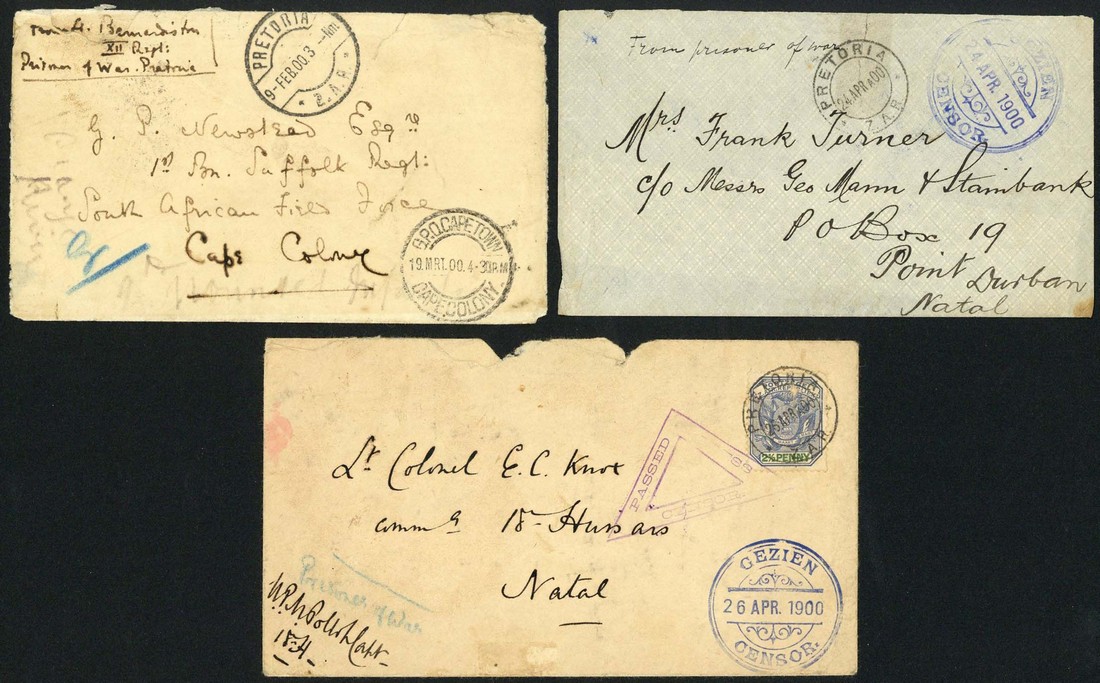 from Lt. Bernardiston
XII Regt:
Prisoner of War. Pretoria
PRETORIA
9-FEB.00.3-Nm
Z.A.R
G. P. Newstead Esqre
1st Bn. Suffolk Regt:
South African Field Force
Cape Colony
G.P.O. CAPETOWN
19.MRT.00.4-30P.M
CAPE.COLONY
From prisoner of war
PRETORIA
24APR.00
Z.A.R.
GEZIEN
24 APR. 1900
CENSOR.
Mrs Frank Turner
c/o Messrs Geo Mann & Stainbank
P O Box 19
Point Durban
Natal
PRETORIA
25APR.00
Z.A.R.
2½ PENNY
PASSED
CENSOR
Lt Colonel E. C. Knox
commdg 18th Hussars
Natal
Prisoner of War
Capt
18th H
GEZIEN
26 APR. 1900
CENSOR.